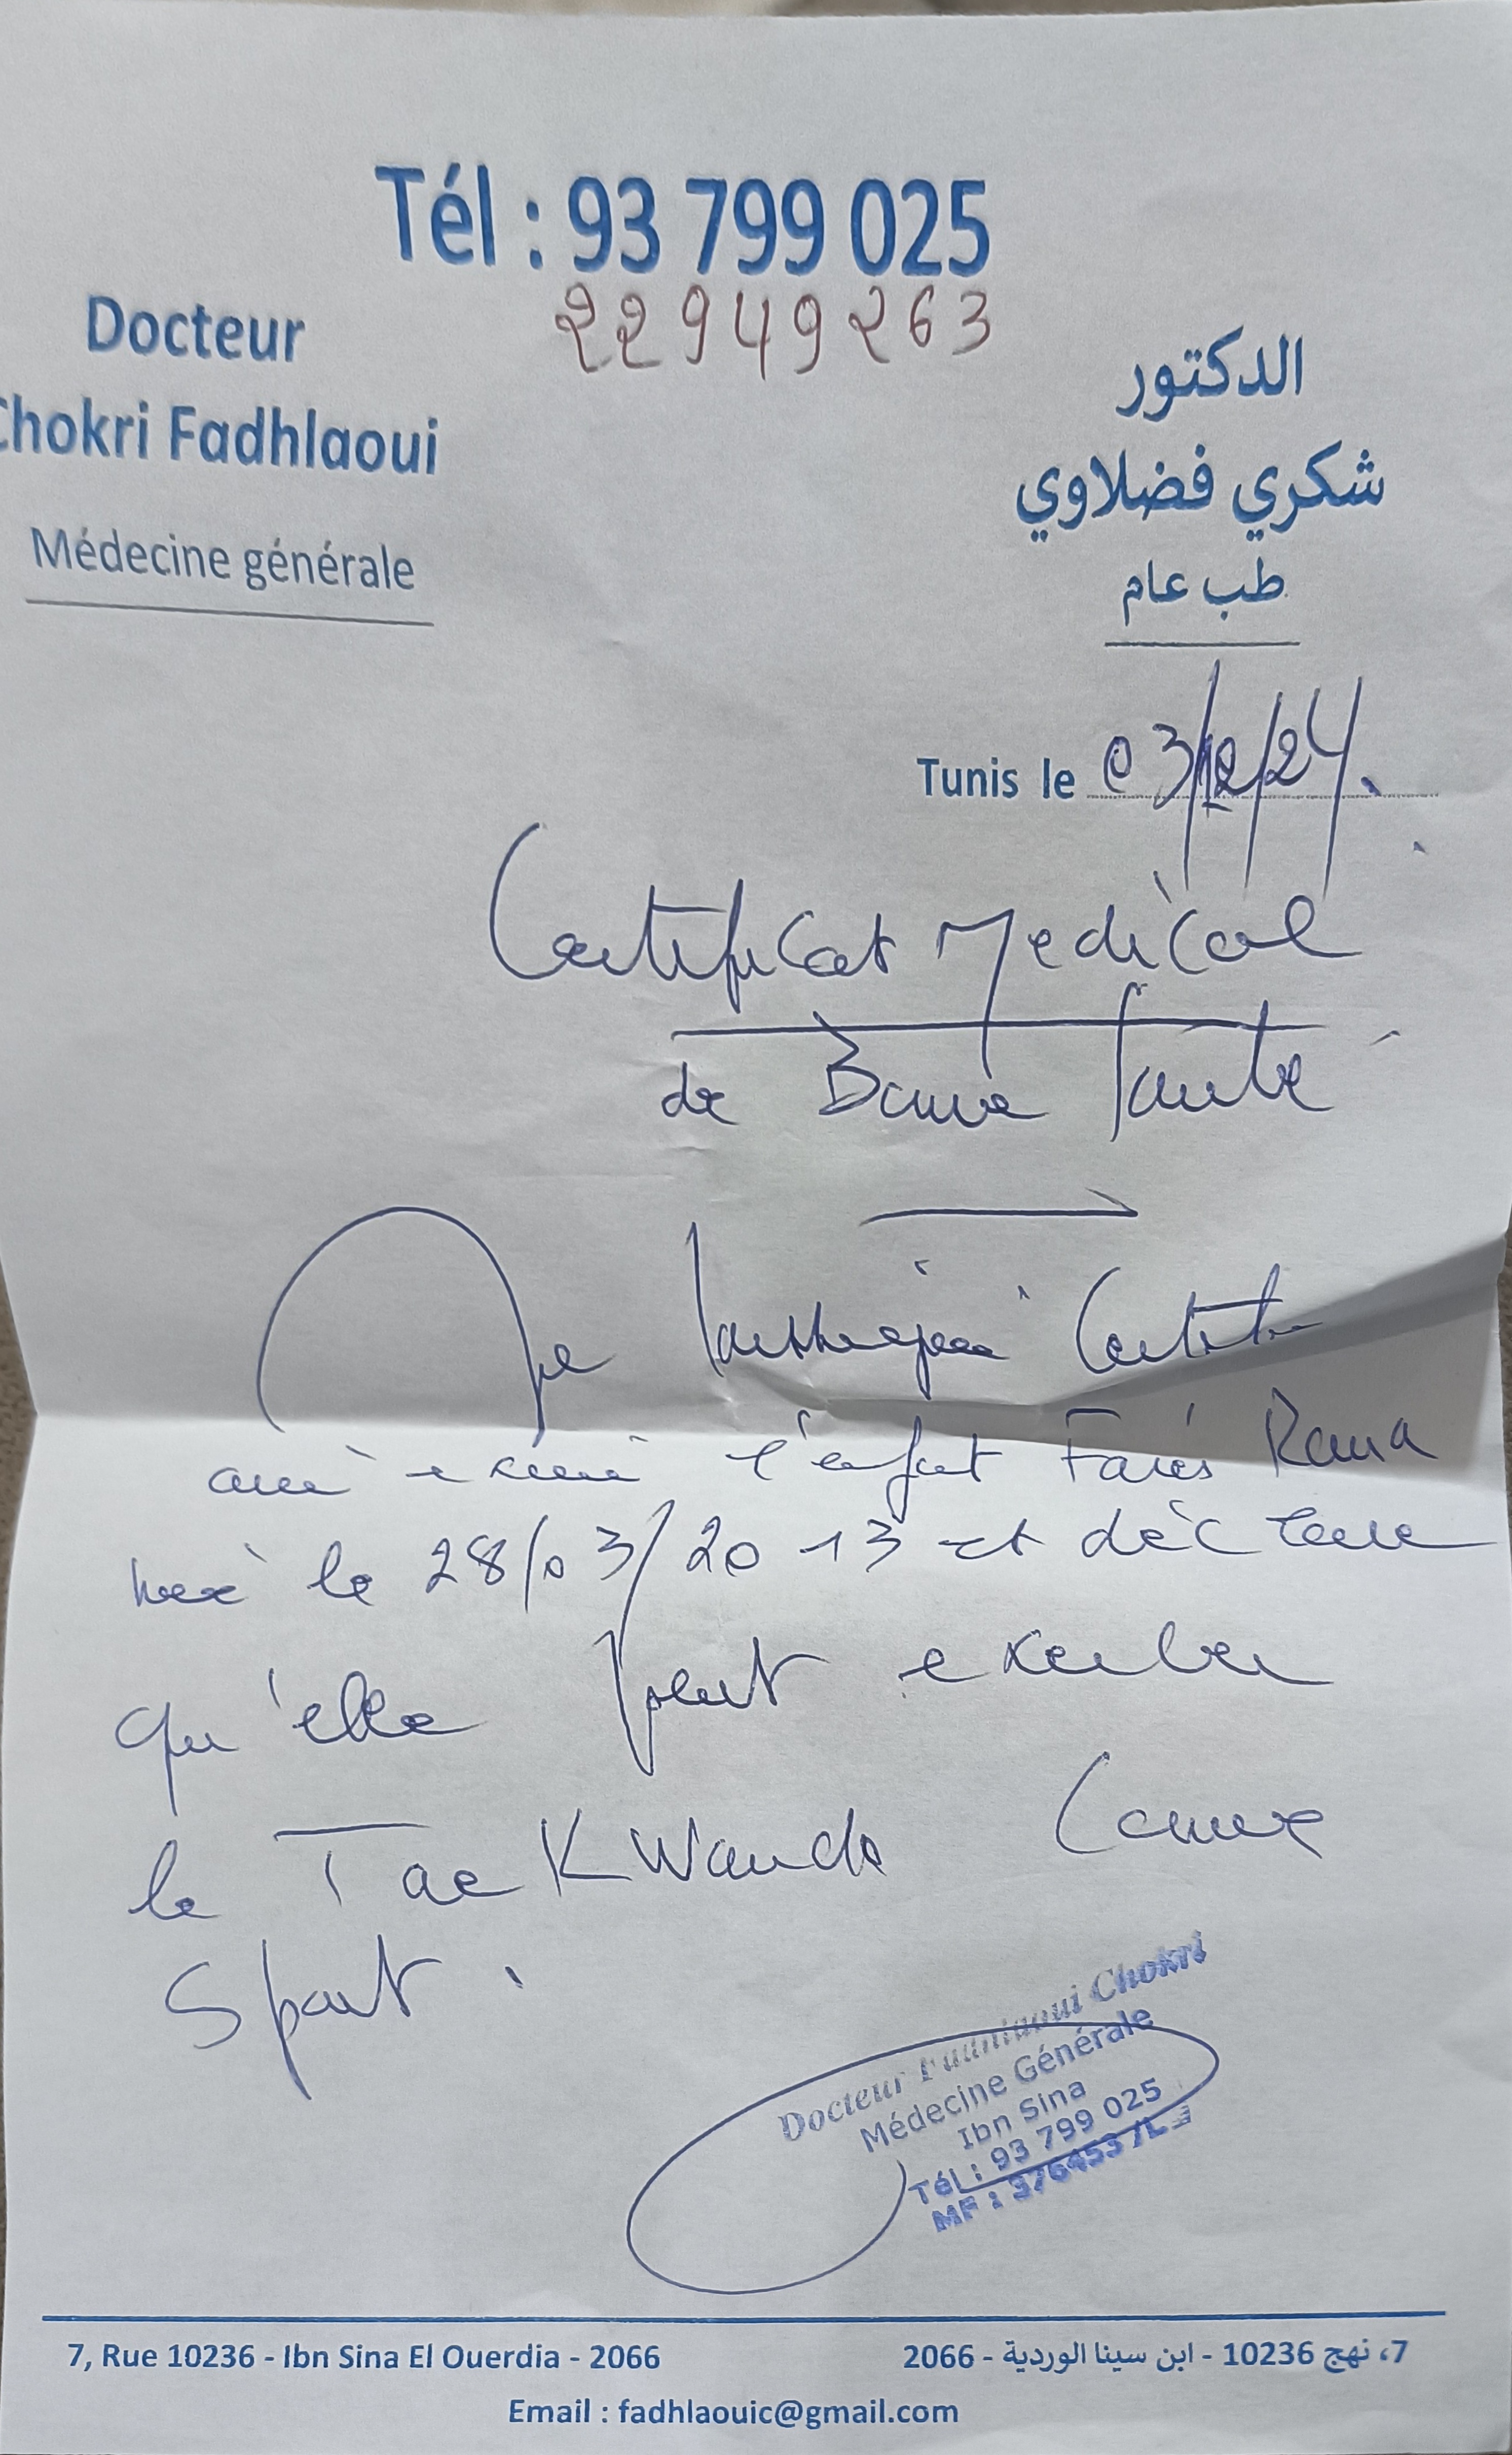 Tél : 93 799 025
22 949 263
Docteur
Chokri Fadhlaoui
Médecine générale
الدكتور
شكري فضلاوي
طب عام
Tunis le 03/12/24.
Certificat Medical
de Bonne Santé
Je soussigné Certifie
avoir examiné l'enfant Farés Rana
née le 28/03/2013 et déclare
qu'elle peut exercer
le Taekwondo Comme
Sport.
Docteur Fadhlaoui Chokri
Médecine Générale
Ibn Sina
Tél : 93 799 025
MF :
7, Rue 10236 - Ibn Sina El Ouerdia - 2066
7، نهج 10236 - ابن سينا الوردية - 2066
Email : fadhlaouic@gmail.com